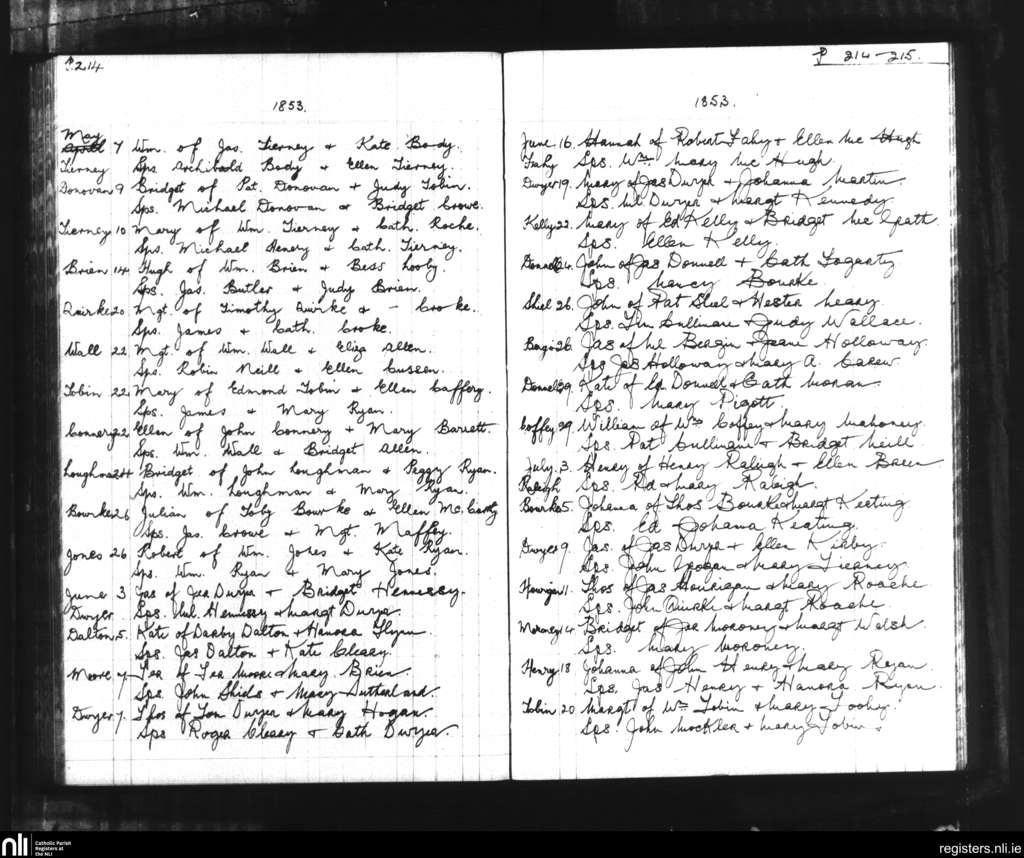 P. 214
1853.
May
April 7 Wm. of Jas. Tierney & Kate Body.
Tierney Sps. Archibald Body & Ellen Tierney.
Donovan 9 Bridget of Pat. Donovan & Judy Tobin.
Sps. Michael Donovan & Bridget Crowe.
Tierney 10 Mary of Wm. Tierney & Cath. Roche.
Sps. Michael Henery & Cath. Tierney.
Brien 14 Hugh of Wm. Brien & Bess Looby.
Sps. Jas. Butler & Judy Brien.
Quirke 20 Mgt. of Timothy Quirke & - Crooke.
Sps. James & Cath. Crooke.
Wall 22 Mgt. of Wm. Wall & Eliza Allen.
Sps. Robin Neill & Ellen Cussen.
Tobin 22 Mary of Edmond Tobin & Ellen Caffery.
Sps. James & Mary Ryan.
Connery 22 Ellen of John Connery & Mary Barrett.
Sps. Wm. Wall & Bridget Allen.
Loughman 24 Bridget of John Loughman & Peggy Ryan.
Sps. Wm. Loughman & Mary Ryan.
Bourke 26 Julian of Toby Bourke & Ellen Mc.Carty
Sps. Jas. Crowe & Mgt. Maffey.
Jones 26 Robert of Wm. Jones & Kate Ryan.
Sps. Wm. Ryan & Mary Jones.
June 3 Jas of Jer Dwyer & Bridget Hennessy.
Dwyer Sps. Ml. Hennessy & Margt Dwyer
Dalton 5. Kate of Darby Dalton & Hanora Flynn
Sps. Jas Dalton & Kate Cleary.
Moore 7 of Moore & Mary Brien.
Sps. John Shiels & Mary Sutherland.
Dwyer 7. Thos of Tom Dwyer & Mary Hogan.
Sps Roger Cleary & Cath Dwyer.
P 214-215.
1853.
June 16. Hannah of Robert Fahy & Ellen Mc Hugh
Fahy Sps. Wm. Mary Mc Hugh
Dwyer 19. Mary of Jas Dwyer & Johanna Martin.
Sps. Ml Dwyer & Margt Kennedy
Kelly 22. Mary of Ed Kelly & Bridget Mc Gratt
Sps. Ellen Kelly
Donnell 24. John of Jas Donnell & Cath Fogarty
Sps. Nancy Bourke
Shiel 26. John of Pat Shiel & Hester Leary.
Sps. Tim Cullinane & Judy Wallace.
26. Jas of Ml Bergin & Jane Holloway.
Sps Jas Holloway & Mary A. Carew
Donnell 29. Kate of Ed Donnell & Cath Moran
Sps. Mary Pigott.
Coffey 29. William of Wm Coffey & Mary Mahoney.
Sps. Pat Cullinan & Bridget Neill
July 3. Henry of Henry Raleigh & Ellen Breen
Raleigh Sps. Rd & Mary Raleigh.
Bourke 5. Johanna of Thos Bourke & Margt Keating
Sps. Ed Johanna Keating
Dwyer 9. Jas. of Jas Dwyer & Ellen Kirby.
Sps. John Hogan & Mary Tierney
Hourigan 11. Thos of Jas Hourigan & Mary Roache
Sps. John Quirke & Margt Roache.
Moroney 14. Bridget of Jas Moroney & Margt Walsh.
Sps. Mary Moroney
Henry 18 Johanna of John Henry & Mary Ryan.
Sps. Jas Henry & Hanora Ryan.
Tobin 20 Margt of Wm Tobin & Mary Toohy.
Sps. John Mockler & Mary Tobin.
nli
Catholic Parish
Registers at
the NLI
registers.nli.ie